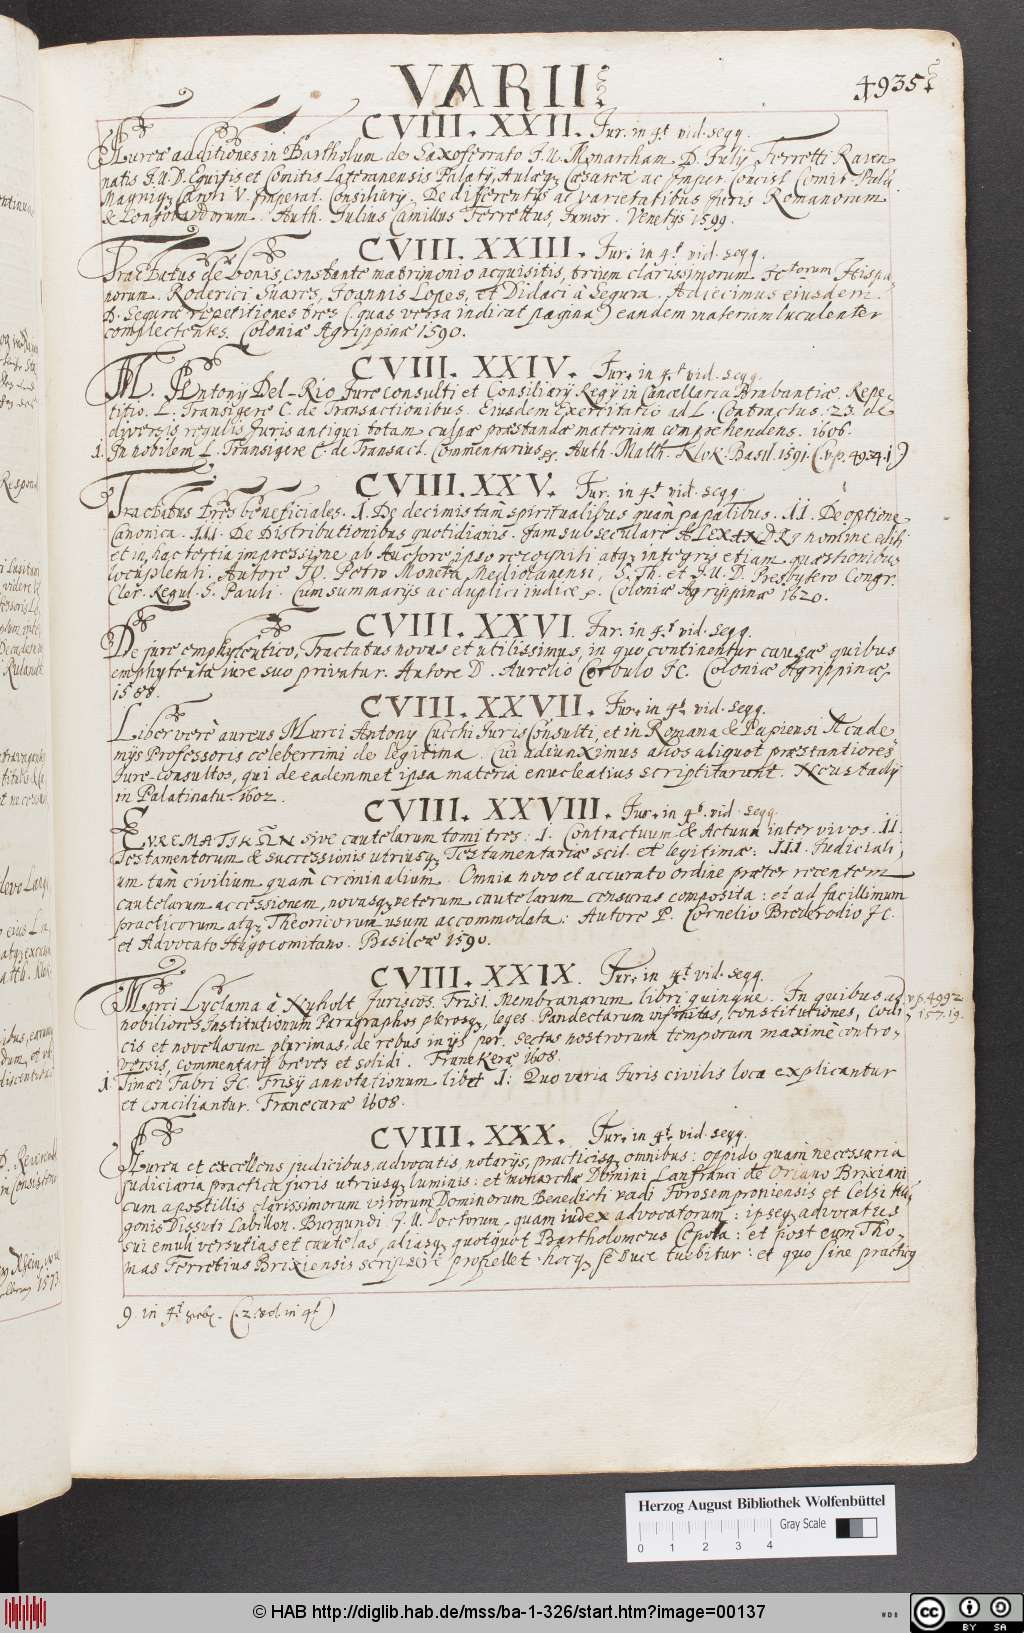 VARII.
4935
CVIII. XXII. Jur. in 4t. vid. seqq.
Aureæ additiones in Bartholum de Saxoferrato J.U. Monarcham. D. Julij Ferretti Raven-
natis J.U.D. Equitis et Comitis Lateranensis Palatij, Aulæq; Cæsareæ ac Imper. Concist. Comit. Pala
Magniq; Caroli V. Imperat. Consiliarij. De differentijs ac varietatibus Juris Romanorum
& Longobardorum. Auth. Julius Camillus Ferrettus, Junior. Venetijs 1599.
CVIII. XXIII. Jur. in 4t. vid. seqq.
Tractatus de bonis constante matrimonio acquisitis, trium clarissimorum JCtorum Hispa-
norum. Roderici Suares, Joannis Lopes, et Didaci à Segura. Adiecimus eiusdem
D. Seguræ repetitiones tres (quas versa indicat pagina) eandem materiam luculenter
complectentes. Coloniæ Agrippinæ 1590.
CVIII. XXIV. Jur. in 4t vid. seqq.
M. Antonij Del-Rio Jureconsulti et Consiliarij Regij in Cancellaria Brabantiæ Repe-
titio. L. Transigere C. de Transactionibus. Eiusdem Exercitatio ad L. Contractus. 23. de
diversis regulis Juris antiqui totam culpæ præstandæ materiam comprehendens. 1606.
1. In nobilem L. Transigere C. de Transact. Commentarius &c. Auth. Matth. Klok. Basil. 1591. (v.p. 4934.1)
CVIII. XXV. Jur. in 4t vid. seqq.
Tractatus tres beneficiales. I. De decimis tam spiritualibus quam papalibus. II. De optione
Canonica. III. De Distributionibus quotidianis. Jam sub seculare ALEXANDRI nomine editi
et in hac tertia impressione ab Auctore ipso recogniti atq; integris etiam quæstionibus
locupletati. Autore JO. Petro Moneta Mediolanensi, S. Th. et J.U.D. Presbytero Congr.
Cler. Regul. S. Pauli. Cum summarijs ac duplici indice. Coloniæ Agrippinæ 1620.
CVIII. XXVI. Jur. in 4t vid. seqq.
De jure emphyteutico, Tractatus novus et utilissimus, in quo continentur causæ quibus
emphyteuta iure suo privatur. Autore D. Aurelio Corbulo JC. Coloniæ Agrippinæ
1588.
CVIII. XXVII. Jur. in 4t. vid. seqq.
Liber verè aureus Marci Antonij Cucchi JurisConsulti, et in Romana & Papiensi Acade-
mijs Professoris celeberrimi de legitima. Cui adiunximus alios aliquot præstantiores
Jure-consultos, qui de eademmet ipsa materia enucleatius scriptitarunt. Neustadij
in Palatinatu. 1602.
CVIII. XXVIII. Jur. in 4t. vid. seqq.
EUREMATIKΩN sive cautelarum tomi tres: I. Contractuum & Actuum inter vivos. II.
Testamentorum & successionis utriusq; Testamentariæ scil. et legitimæ: III. Judiciali-
um tàm civilium quàm criminalium. Omnia novo et accurato ordine præter recentem
cautelarum accessionem, novasq; veterum cautelarum censuras composita: et ad facillimum
practicorum atq; Theoricorum usum accommodata: Autore P. Cornelio Brederodio JC.
et Advocato Hagocomitano. Basileæ 1590.
CVIII. XXIX. Jur. in 4t vid. seqq.
Marci Lyclama à Nyholt Juriscos. Frisi. Membranarum libri quinque. In quibus ad
v.p. 4992.
nobiliores Institutionum Paragraphos plerosq; leges Pandectarum infinitas, constitutiones, Codi-
157.19.
cis et novellarum plurimas, de rebus in ijs per sectas nostrorum temporum maximè contro-
versis, commentarij breves et solidi. Franekeræ 1608.
1. Timæi Fabri JC. Frisij annotationum liber I: Quo varia Juris civilis loca explicantur
et conciliantur. Franecaræ 1608.
CVIII. XXX. Jur. in 4t. vid. seqq.
Aurea et excellens judicibus, advocatis, notarijs, practicisq; omnibus: oppido quam necessaria
judiciaria practica juris utriusq; luminis: et monarchæ Domini Lanfranci de Oriano Brixiani
cum apostillis clarissimorum virorum Dominorum Benedicti vadi Forosemproniensis et Celsi Hu-
gonis Dissuti Cabillon. Burgundi J.U. Doctorum, quam iudex advocatorum: ipseq; advocatus
sui emuli versutias et cautelas, aliasq; quotquot Bartholomeus Cepola: et post eum Tho-
mas Ferretius Brixiensis scripsere propellet. hocq; se duce tuebitur: et quo sine practicq
HERZOG August Bibliothek Wolfenbüttel
Gray Scale
0 1 2 3 4
© HAB http://diglib.hab.de/mss/ba-1-326/start.htm?image=00137
cc BY SA